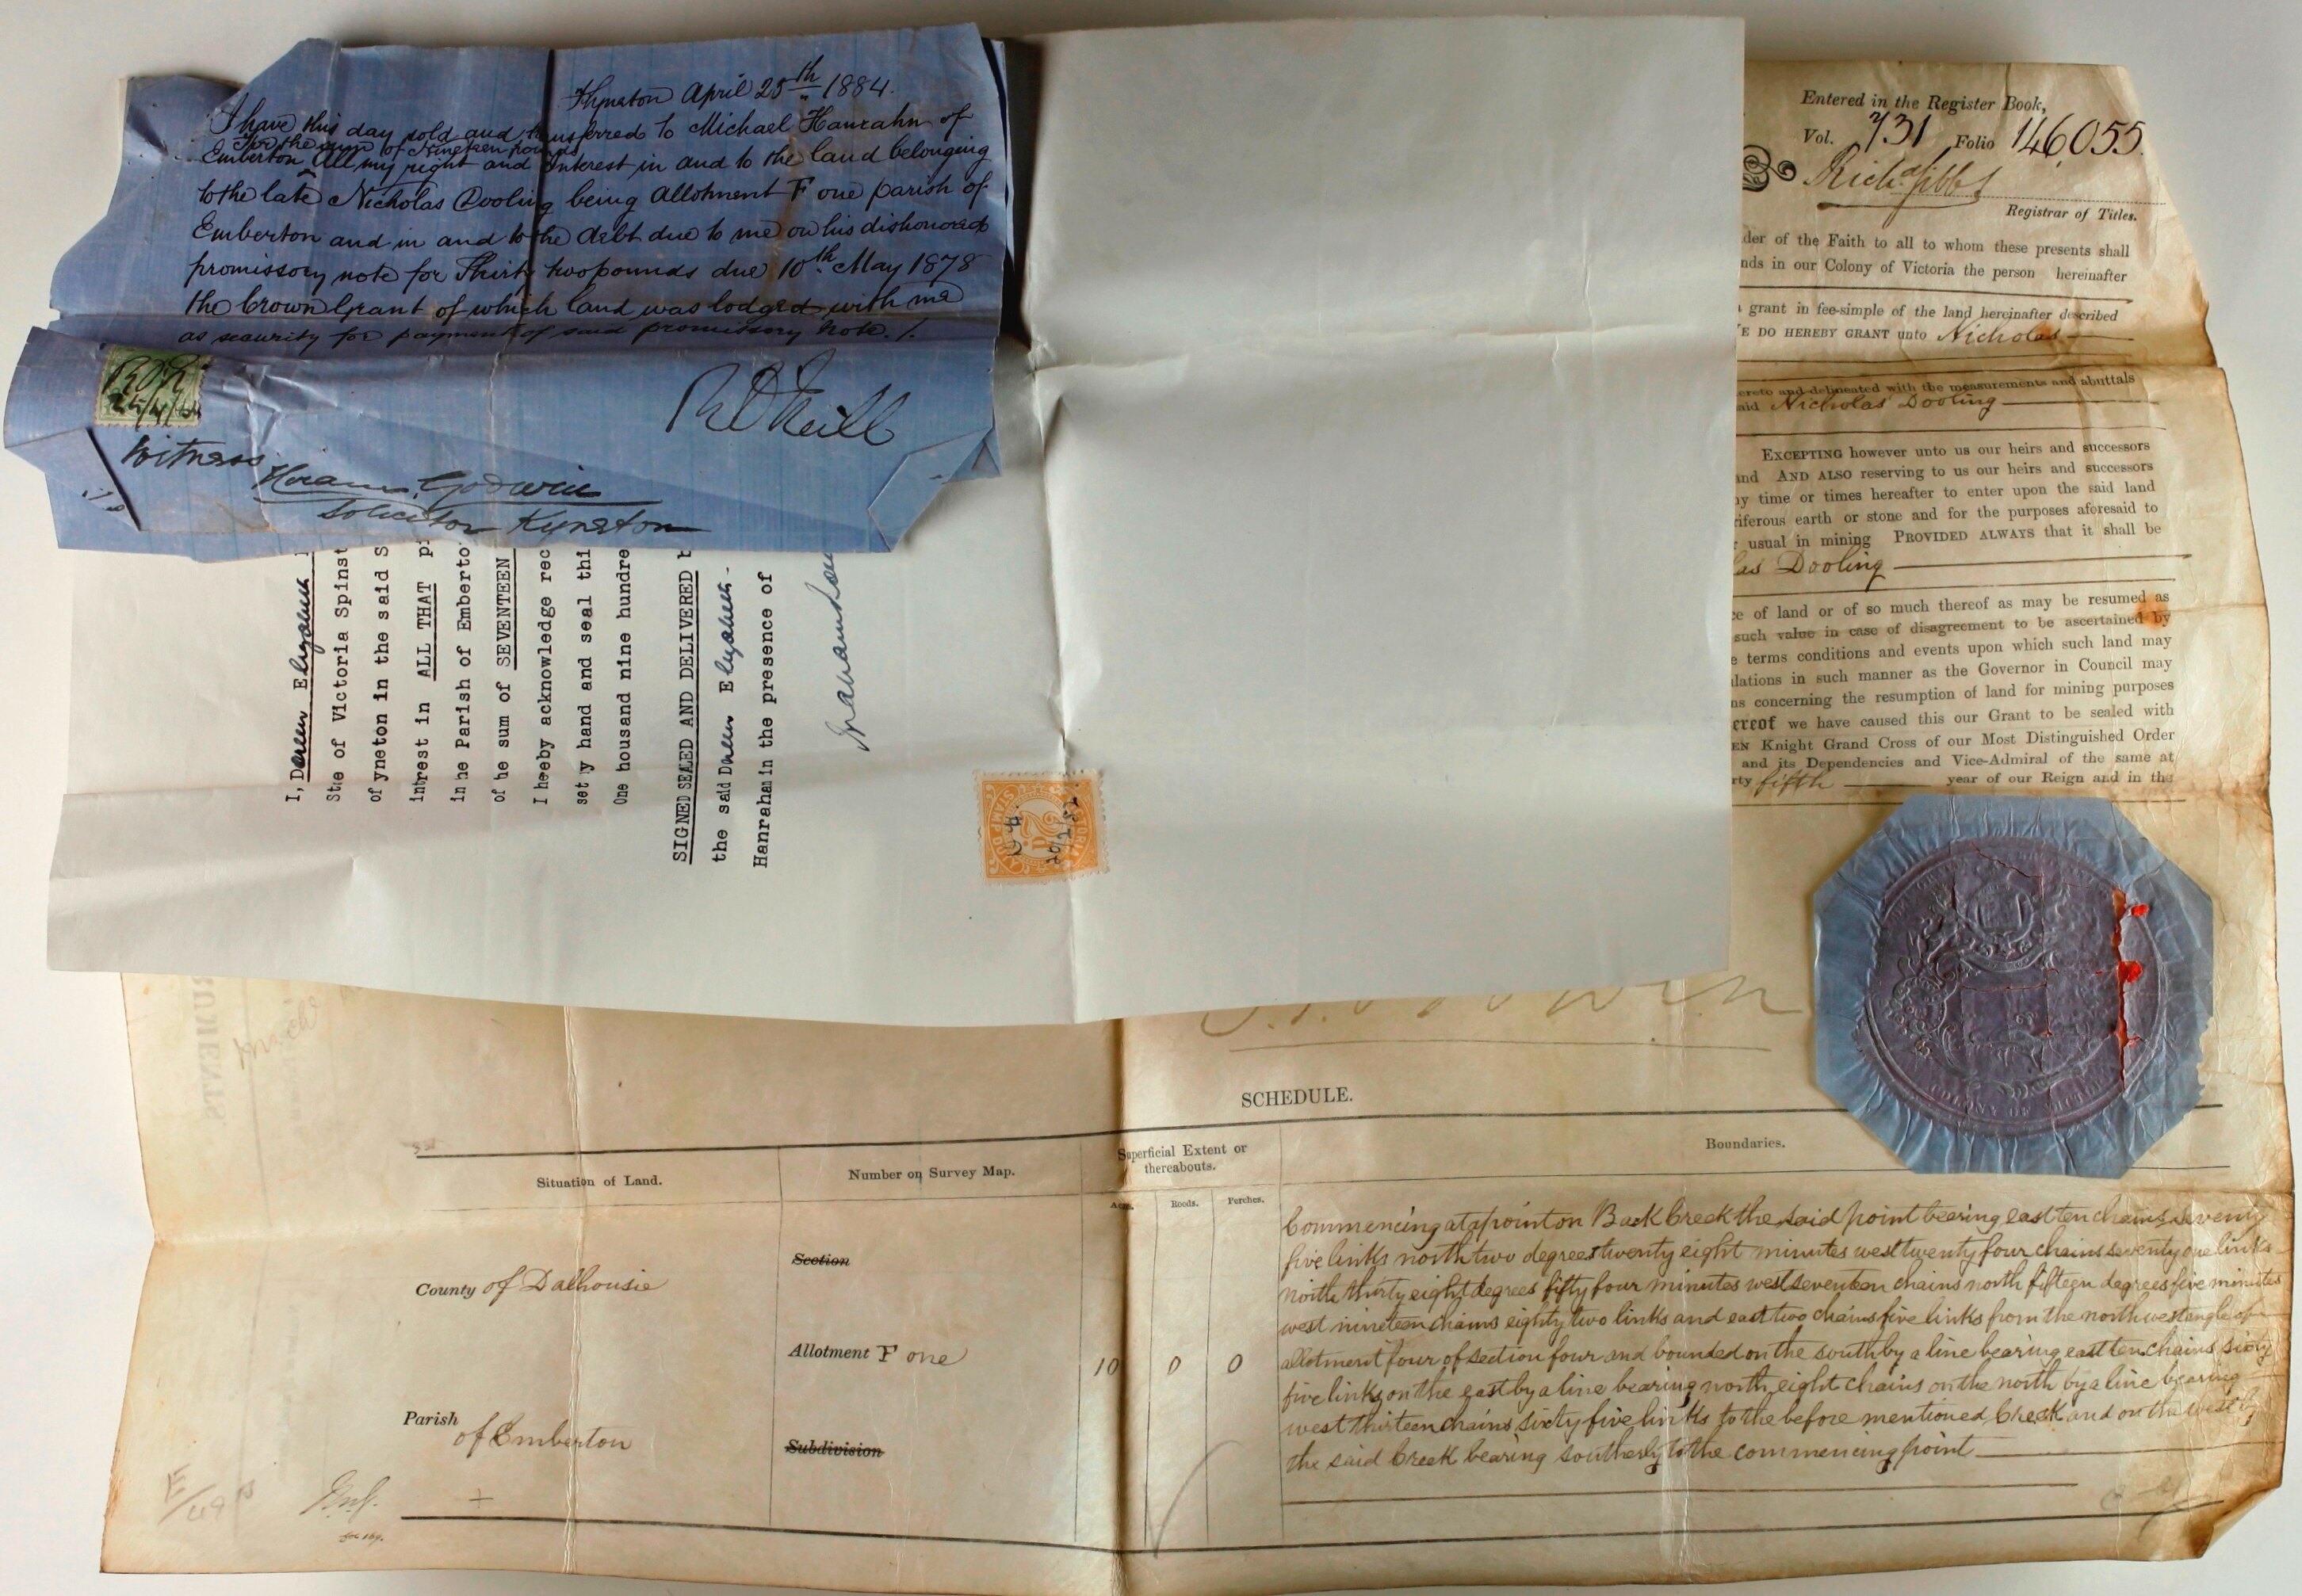 Kyneton April 25th 1884.
I have this day sold and transferred to Michael Hanrahan of
for the sum of Nineteen pounds
Emberton All my right and Interest in and to the land belonging
to the late Nicholas Dooling being Allotment F one parish of
Emberton and in and to the debt due to me on his dishonored
promissory note for Thirty two pounds due 10th May 1878
the Crown Grant of which land was lodged with me
as security for payment of said promissory note.
R O'Neill
25/4/84
Witness
Godwin
Solicitor Kyneton
I, Doreen Elizabeth
State of Victoria Spinst
of yneton in the said S
intrest in ALL THAT pi
in he Parish of Emberto
of he sum of SEVENTEEN
I heeby acknowledge rec
set y hand and seal thi
One housand nine hundre
SIGNED SEALED AND DELIVERED
the said Doreen Elizabeth
Hanrahan in the presence of
STAMP DUTY
VICTORIA
Entered in the Register Book,
Vol. 731 Folio 146,055.
Richd Gibbs
Registrar of Titles.
der of the Faith to all to whom these presents shall
nds in our Colony of Victoria the person hereinafter
grant in fee-simple of the land hereinafter described
E DO HEREBY GRANT unto Nicholas
ereto and delineated with the measurements and abuttals
aid Nicholas Dooling
EXCEPTING however unto us our heirs and successors
and AND ALSO reserving to us our heirs and successors
ny time or times hereafter to enter upon the said land
riferous earth or stone and for the purposes aforesaid to
usual in mining PROVIDED ALWAYS that it shall be
las Dooling
ce of land or of so much thereof as may be resumed as
such value in case of disagreement to be ascertained by
e terms conditions and events upon which such land may
ulations in such manner as the Governor in Council may
ns concerning the resumption of land for mining purposes
ereof we have caused this our Grant to be sealed with
EN Knight Grand Cross of our Most Distinguished Order
and its Dependencies and Vice-Admiral of the same at
rty fifth year of our Reign and in the
COLONY OF VICTORIA
SCHEDULE.
Situation of Land.
Number on Survey Map.
Superficial Extent or
thereabouts.
Boundaries.
Acres.
Roods.
Perches.
County of Dalhousie
Parish of Emberton
Section
Allotment F one
Subdivision
10 0 0
Commencing at a point on Back Creek the said point bearing east ten chains seventy
five links north two degrees twenty eight minutes west twenty four chains seventy one links
north thirty eight degrees fifty four minutes west seventeen chains north fifteen degrees five minutes
west nineteen chains eighty two links and east two chains five links from the north west angle of
allotment four of section four and bounded on the south by a line bearing east ten chains sixty
five links on the east by a line bearing north eight chains on the north by a line bearing
west thirteen chains sixty five links to the before mentioned Creek and on the west by
the said Creek bearing southerly to the commencing point